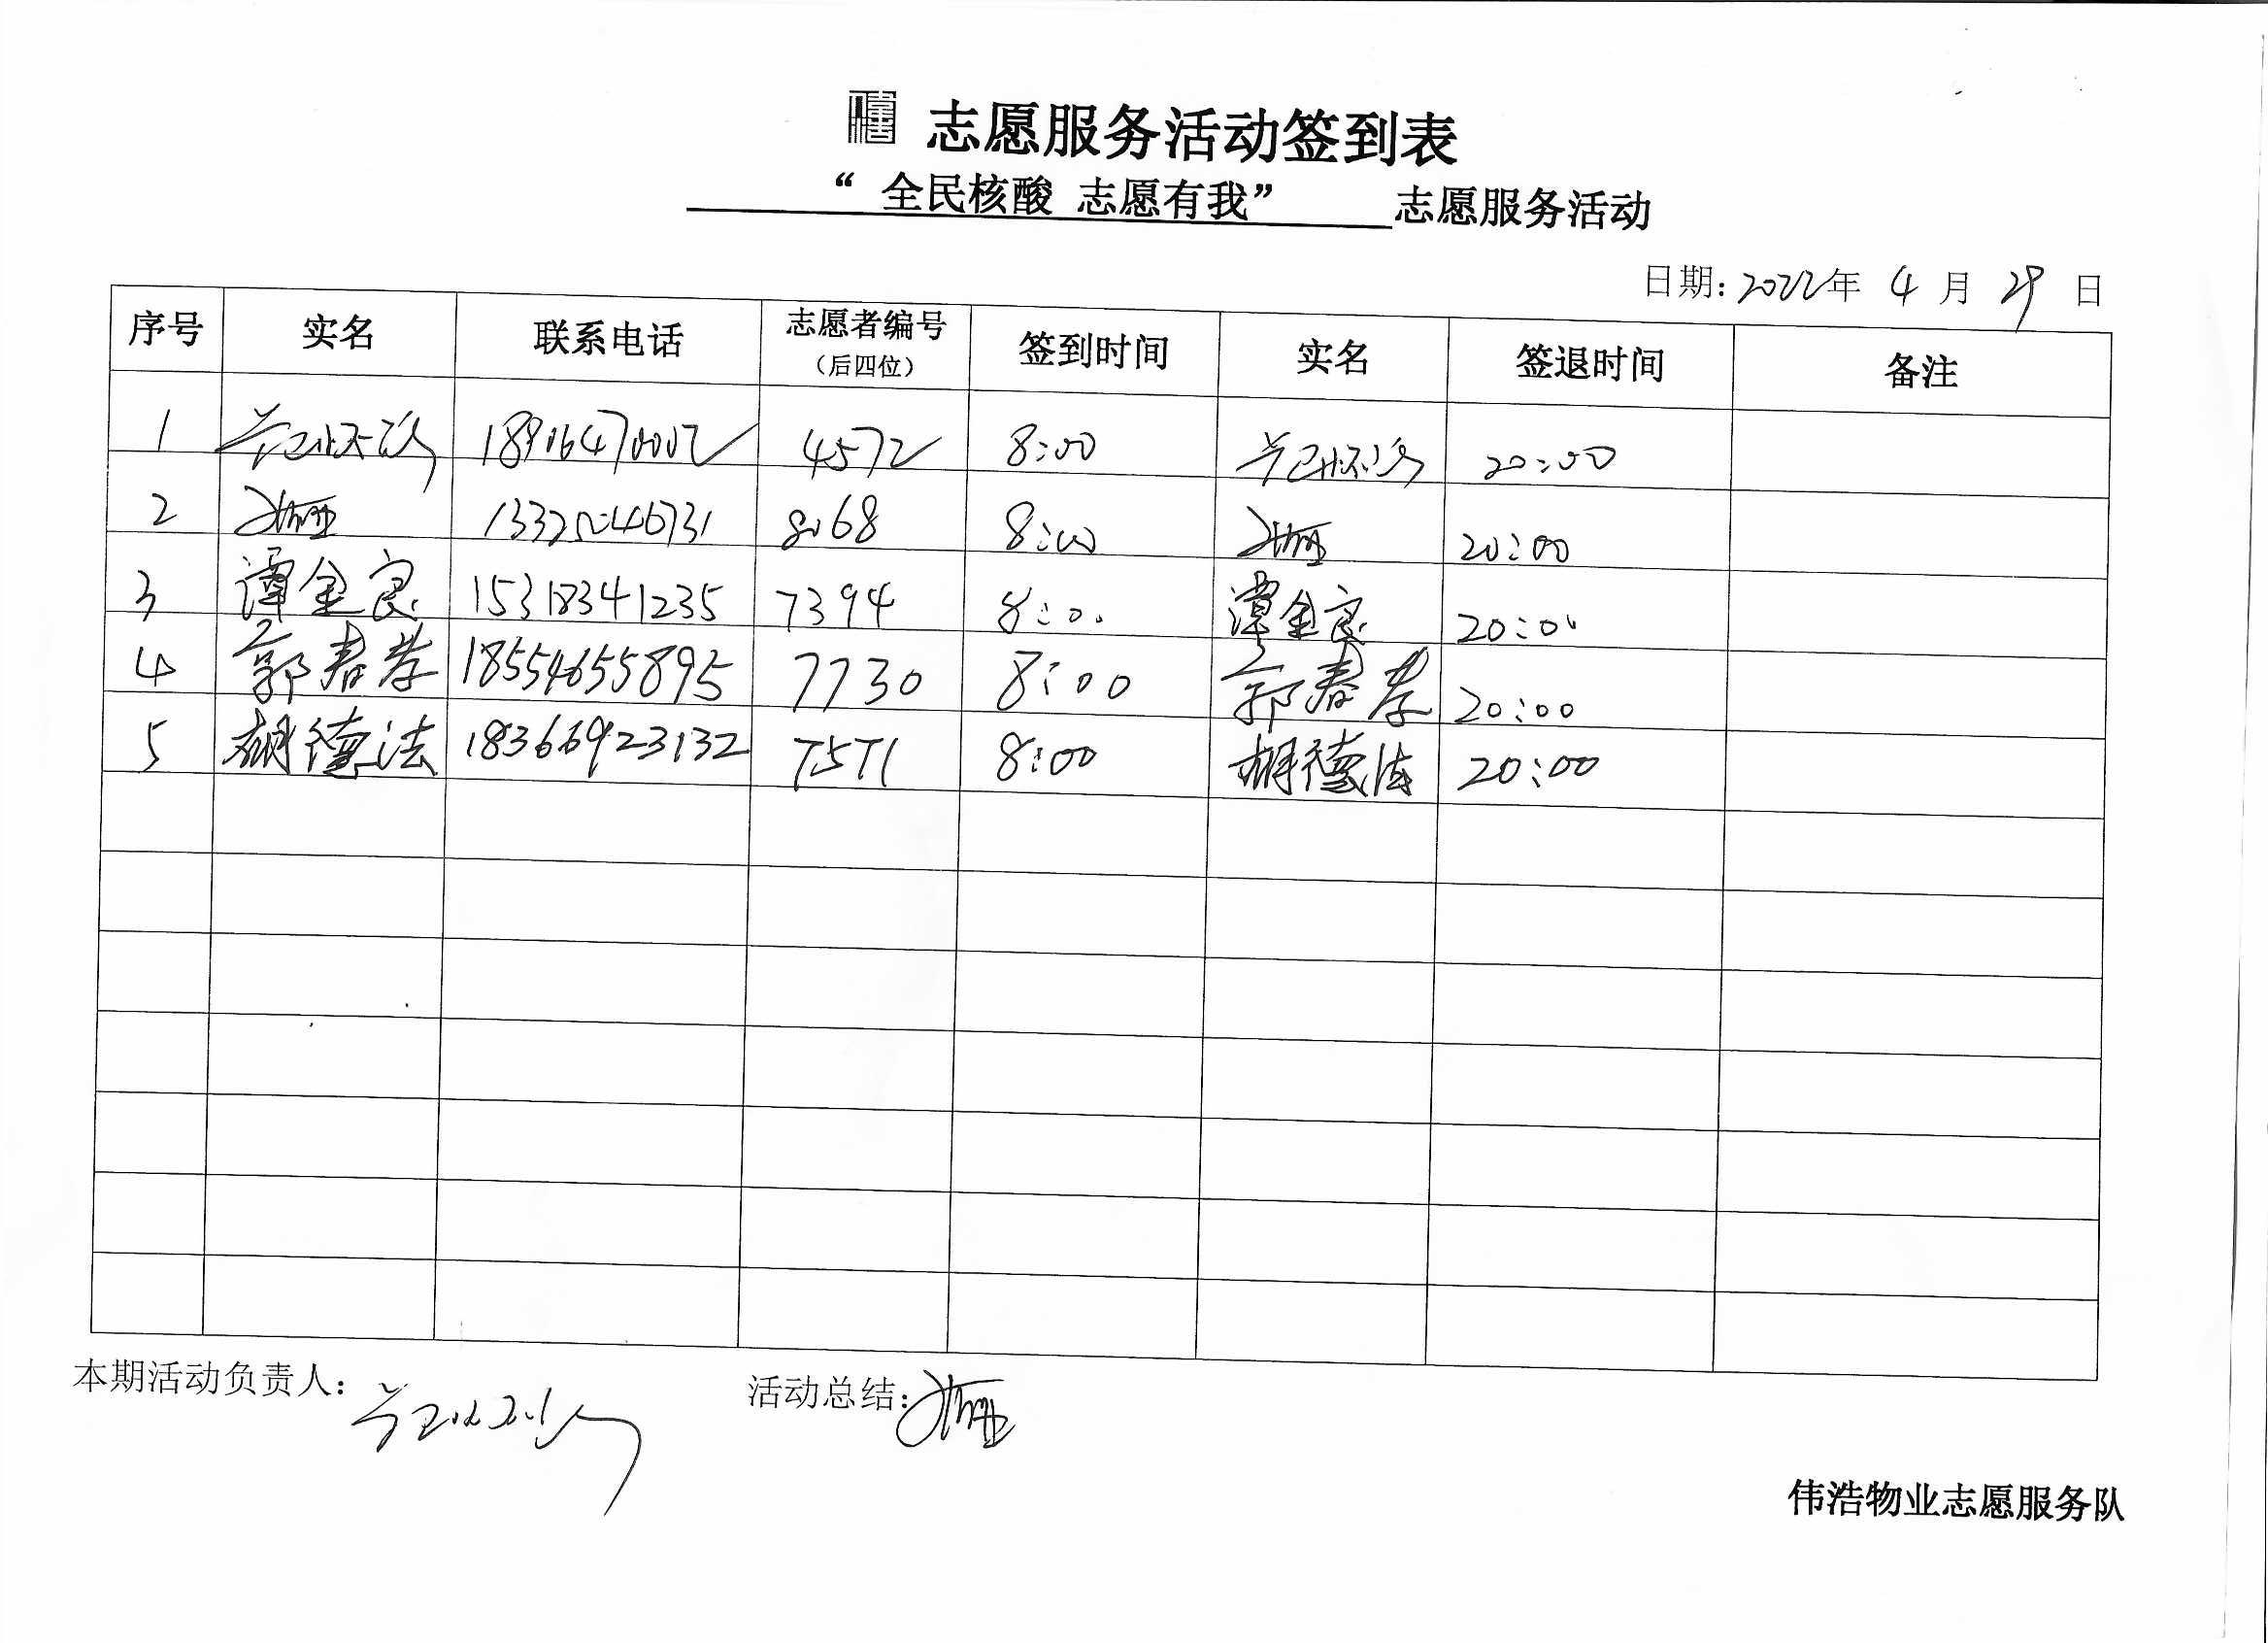 志愿服务活动签到表
“ 全民核酸 志愿有我” 志愿服务活动
日期: 2022年 4 月 29 日
序号 实名 联系电话 志愿者编号 (后四位) 签到时间 实名 签退时间 备注
1 18906470002 4572 8:00 20:00
2 8068 8:00 20:00
3 谭金良 15318341235 7394 8:00 谭金良 20:00
4 郭春孝 18554655895 7730 8:00 郭春孝 20:00
5 胡德法 18366923132 7571 8:00 胡德法 20:00
本期活动负责人: 活动总结:
伟浩物业志愿服务队